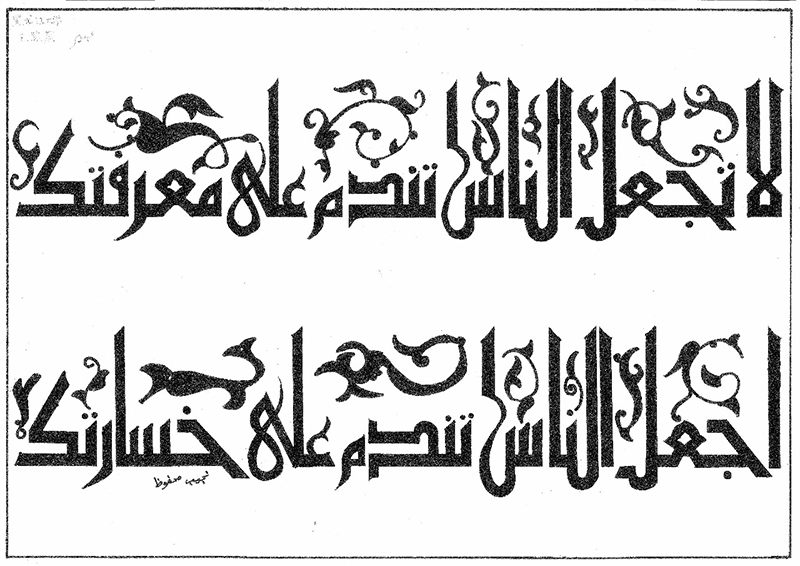 لا تجعل الناس تندم على معرفتك
اجعل الناس تندم على خسارتك
نجيب محفوظ